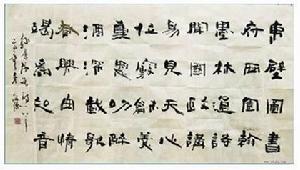 東壁圖書
府西園翰
墨林誦詩
聞國政講
易見天心
位竊和羹
重恩叨醉
酒深載歌
春興曲情
竭為知音